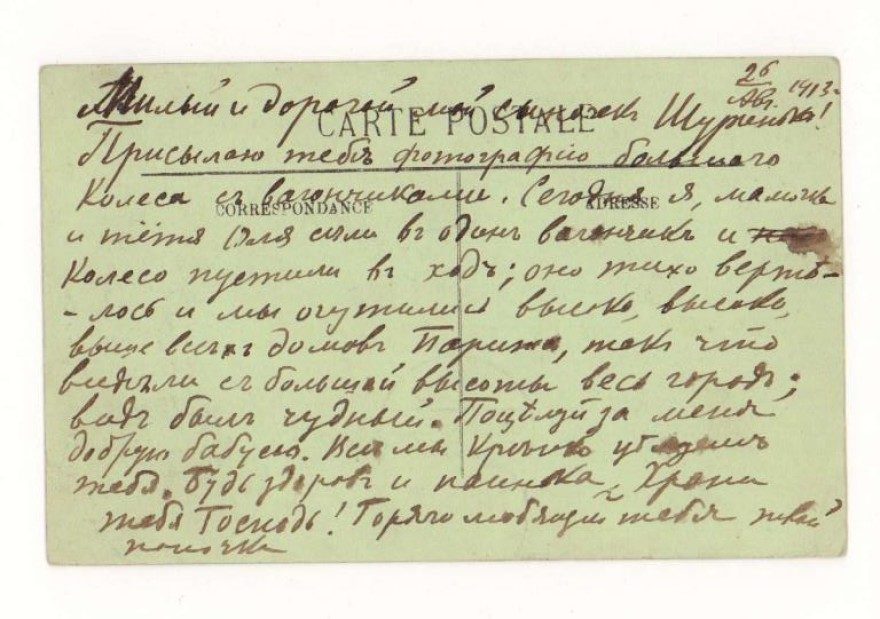 26
Авг. 1913 г.
Милый и дорогой мой сыночек Шурёнька!
CARTE POSTALE
Присылаю тебѣ фотографiю большого
Колеса съ вагончиками. Сегодня я, мамочка
CORRESPONDANCE
ADRESSE
и тётя Оля сѣли въ одинъ вагончикъ и
Колесо пустили въ ходъ; оно тихо вертѣ-
-лось и мы очутились высоко, высоко,
выше всѣхъ домовъ Парижа, такъ что
видѣли съ большой высоты весь городъ;
видъ былъ чудный. Поцѣлуй за меня
добрую бабусю. Всѣ мы крѣпко цѣлуемъ
тебя. Будь здоровъ и паинька, Храни
тебя Господь! Горячо любящiй тебя твой
папочка